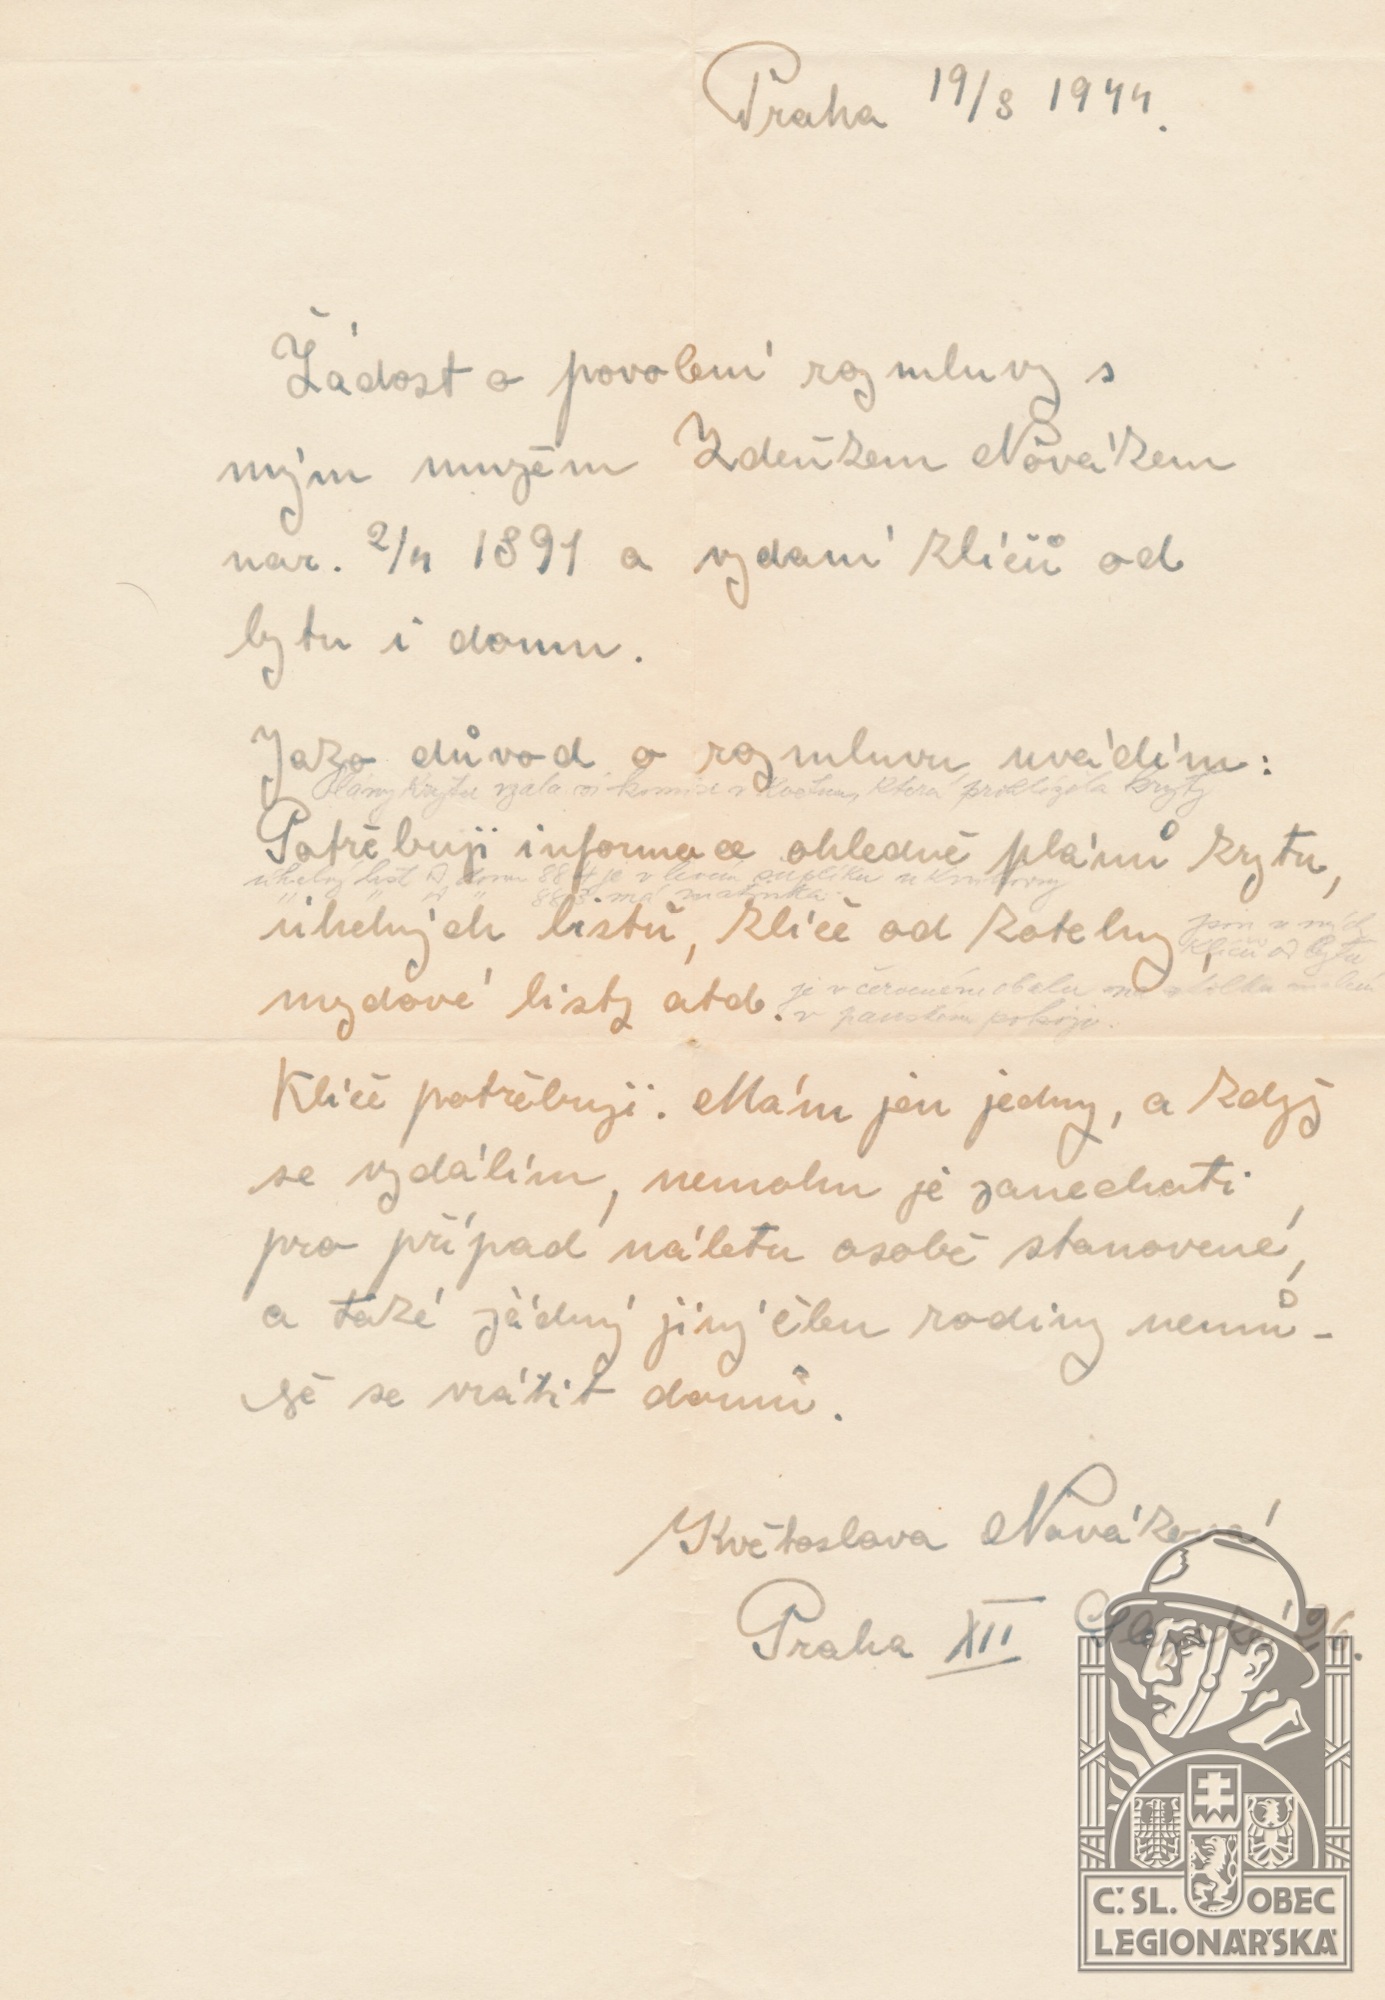 Praha 19/8 1944.
Žádost o povolení rozmluvy s
mým mužem Zdeňkem Novákem
nar. 2/4 1891 a vydání klíčů od
bytu i domu.
Jako důvod o rozmluvu uvádím:
Plány krytu vzala si komise v květnu, která prohlížela kryty
Potřebuji informace ohledně plánů krytu,
uhelný list dom 884 je v levém šuplíku u knihovny
" " " 883 má matinka
uhelných listů, klíč od kotelny,
jsou u mých
klíčů od bytu
mzdové listy atd.
je v červeném obalu na stolku
v panském pokoji.
Klíč potřebuji. Mám jen jedny, a když
se vzdálím, nemohu je zanechati
pro případ náletu osobě stanovené,
a také žádný jiný člen rodiny nemů-
že se vrátit domů.
Květoslava Nováková
Praha XII 26.
Č. SL. OBEC
LEGIONÁŘSKÁ